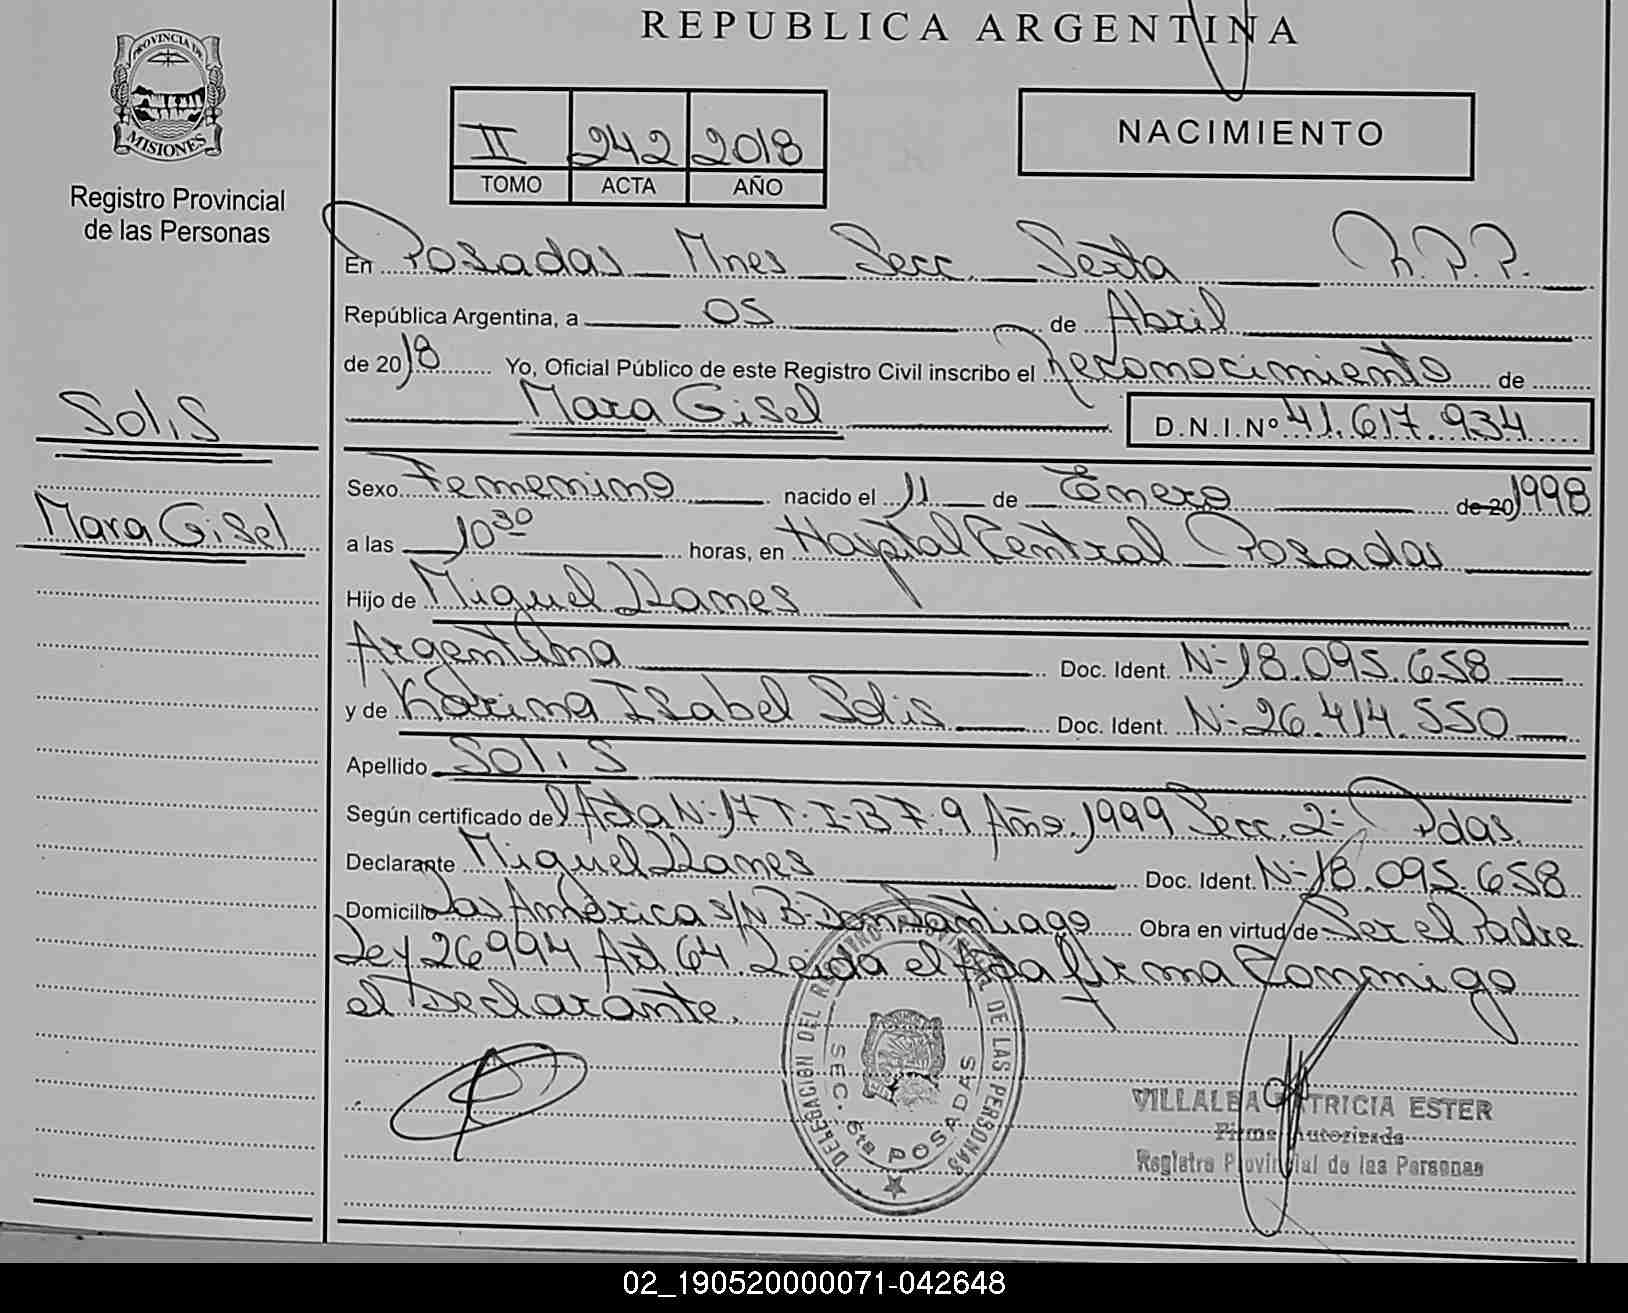 REPUBLICA ARGENTINA
PROVINCIA DE
MISIONES
Registro Provincial
de las Personas
II 242 2018
TOMO ACTA AÑO
NACIMIENTO
En Posadas Mnes Secc. Sexta R.P.P.
República Argentina, a 05 de Abril
de 2018 Yo, Oficial Público de este Registro Civil inscribo el Reconocimiento de
Mara Gisel D.N.I.Nº 41.617.934
Solis
Mara Gisel
Sexo Femenino nacido el 11 de Enero de 20 1998
a las 10 30 horas, en Hospital Central Posadas
Hijo de Miguel Llanes
Argentina Doc. Ident. Nº 18.095.658
y de Karina Isabel Solis Doc. Ident. Nº 26.414.550
Apellido Solis
Según certificado del Acta Nº 17 T. I-B F. 9 Año 1999 Secc. 2º Pdas.
Declarante Miguel Llanes Doc. Ident. Nº 18.095.658
Domicilio Las América s/N Bº Don Santiago Obra en virtud de Ser el Padre
Ley 26994 Art 64 Leida el Acta firma Conmigo
el Declarante.
DELEGACION DEL REGISTRO PROVINCIAL DE LAS PERSONAS
SEC. 6ta POSADAS
VILLALBA PATRICIA ESTER
Firma Autorizada
Registro Provincial de las Personas
02_190520000071-042648